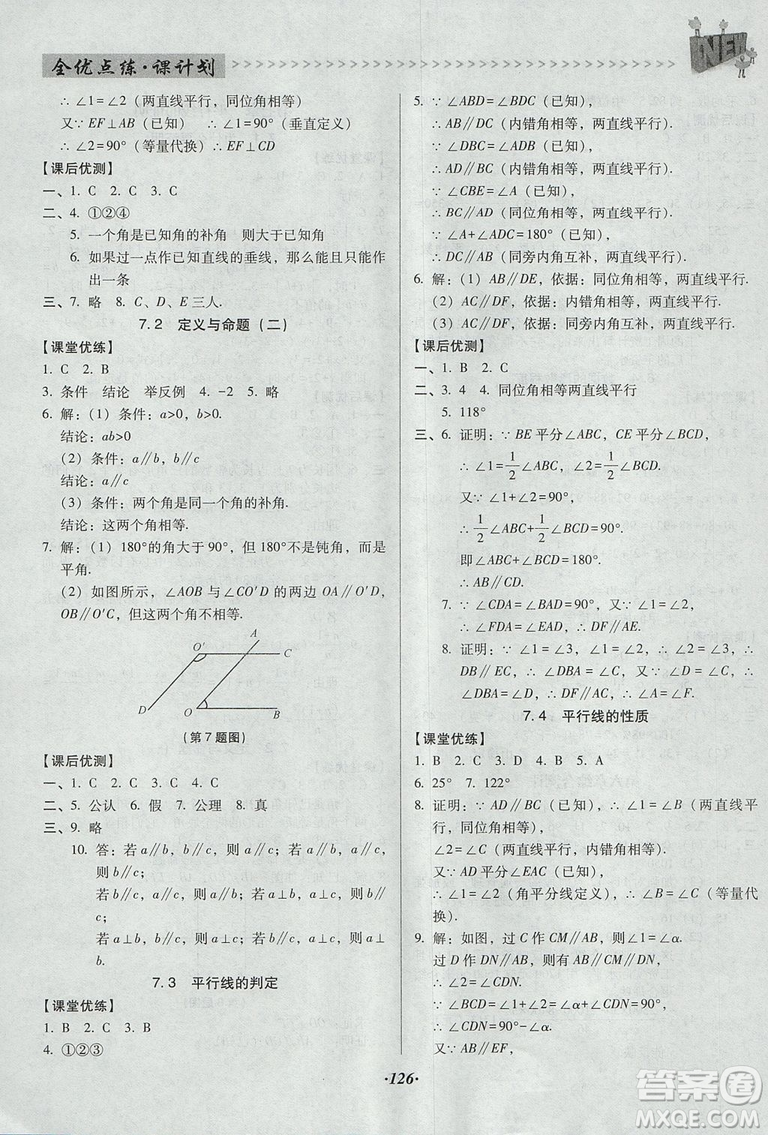 全优点练·课计划
NEW
∴ ∠1=∠2（两直线平行，同位角相等）
又∵ EF⊥AB（已知） ∴ ∠1=90°（垂直定义）
∴ ∠2=90°（等量代换）∴ EF⊥CD
【课后优测】
一、1. C 2. C 3. C
二、4. ①②④
5. 一个角是已知角的补角 则大于已知角
6. 如果过一点作已知直线的垂线，那么能且只能作
出一条
三、7. 略 8. C、D、E三人.
7.2 定义与命题（二）
【课堂优练】
1. C 2. B
3. 条件 结论 举反例 4. -2 5. 略
6. 解：（1）条件：a>0，b>0.
结论：ab>0
（2）条件：a∥b，b∥c
结论：a∥c
（3）条件：两个角是同一个角的补角.
结论：这两个角相等.
7. 解：（1）180°的角大于90°，但180°不是钝角，而是
平角.
（2）如图所示，∠AOB与∠CO′D的两边OA∥O′D，
OB∥O′C，但这两个角不相等.
A
O′
C
D
O
B
（第7题图）
【课后优测】
一、1. C 2. C 3. C 4. B
二、5. 公认 6. 假 7. 公理 8. 真
三、9. 略
10. 答：若a∥b，b∥c，则a∥c；若a∥b，a∥c，
则b∥c；
若b∥c，a∥c，则a∥b；若a⊥b，a⊥c，则
b∥c；
若b∥c，a⊥b，则a⊥c；若b∥c，a⊥c，则
a⊥b.
7.3 平行线的判定
【课堂优练】
1. B 2. C 3. B
4. ①②③
5. ∵ ∠ABD=∠BDC（已知），
∴ AB∥DC（内错角相等，两直线平行）.
∵ ∠DBC=∠ADB（已知），
∴ BC∥AD（内错角相等，两直线平行）.
∵ ∠CBE=∠A（已知），
∴ BC∥AD（同位角相等，两直线平行）.
∵ ∠A+∠ADC=180°（已知），
∴ DC∥AB（同旁内角互补，两直线平行）.
6. 解：（1）AB∥DE，依据：同位角相等，两直线平行.
（2）AC∥DF，依据：内错角相等，两直线平行.
（3）AC∥DF，依据：同旁内角互补，两直线平行.
【课后优测】
一、1. B 2. C
二、3. 4 4. 同位角相等两直线平行
5. 118°
三、6. 证明：∵ BE平分∠ABC，CE平分∠BCD，
∴ ∠1=1/2∠ABC，∠2=1/2∠BCD.
又∵ ∠1+∠2=90°，
∴ 1/2∠ABC+1/2∠BCD=90°.
即∠ABC+∠BCD=180°.
∴ AB∥CD.
7. ∵ ∠CDA=∠DAB=90°，又∵ ∠1=∠2，
∴ ∠FDA=∠EAD，∴ DF∥AE.
8. 证明：∵ ∠1=∠2，∠1=∠3，∴ ∠2=∠3，
∴ DB∥EC，∴ ∠DBA=∠C，又∵ ∠C=∠D，∴
∠DBA=∠D，∴ DF∥AC.
7.4 平行线的性质
【课堂优练】
1. B 2. C 3. D 4. B 5. A
6. 25° 7. 122°
8. 证明：∵ AD∥BC（已知），∴ ∠1=∠B（两直线平
行，同位角相等），
∠2=∠C（两直线平行，内错角相等），
又∵ AD平分∠EAC（已知），
∴ ∠1=∠2（角平分线定义），∴ ∠B=∠C（等量代
换）.
9. 解：如图，过C作CM∥AB，∴ ∠1=∠α.
过D作DN∥AB，∴ DN∥CM，
∴ ∠2=∠CDN.
∵ ∠BCD=∠1+∠2=∠α+∠CDN=90°，
∴ ∠CDN=90°-∠α.
又∵ AB∥EF，
·126·
答案圈
MXQE.COM